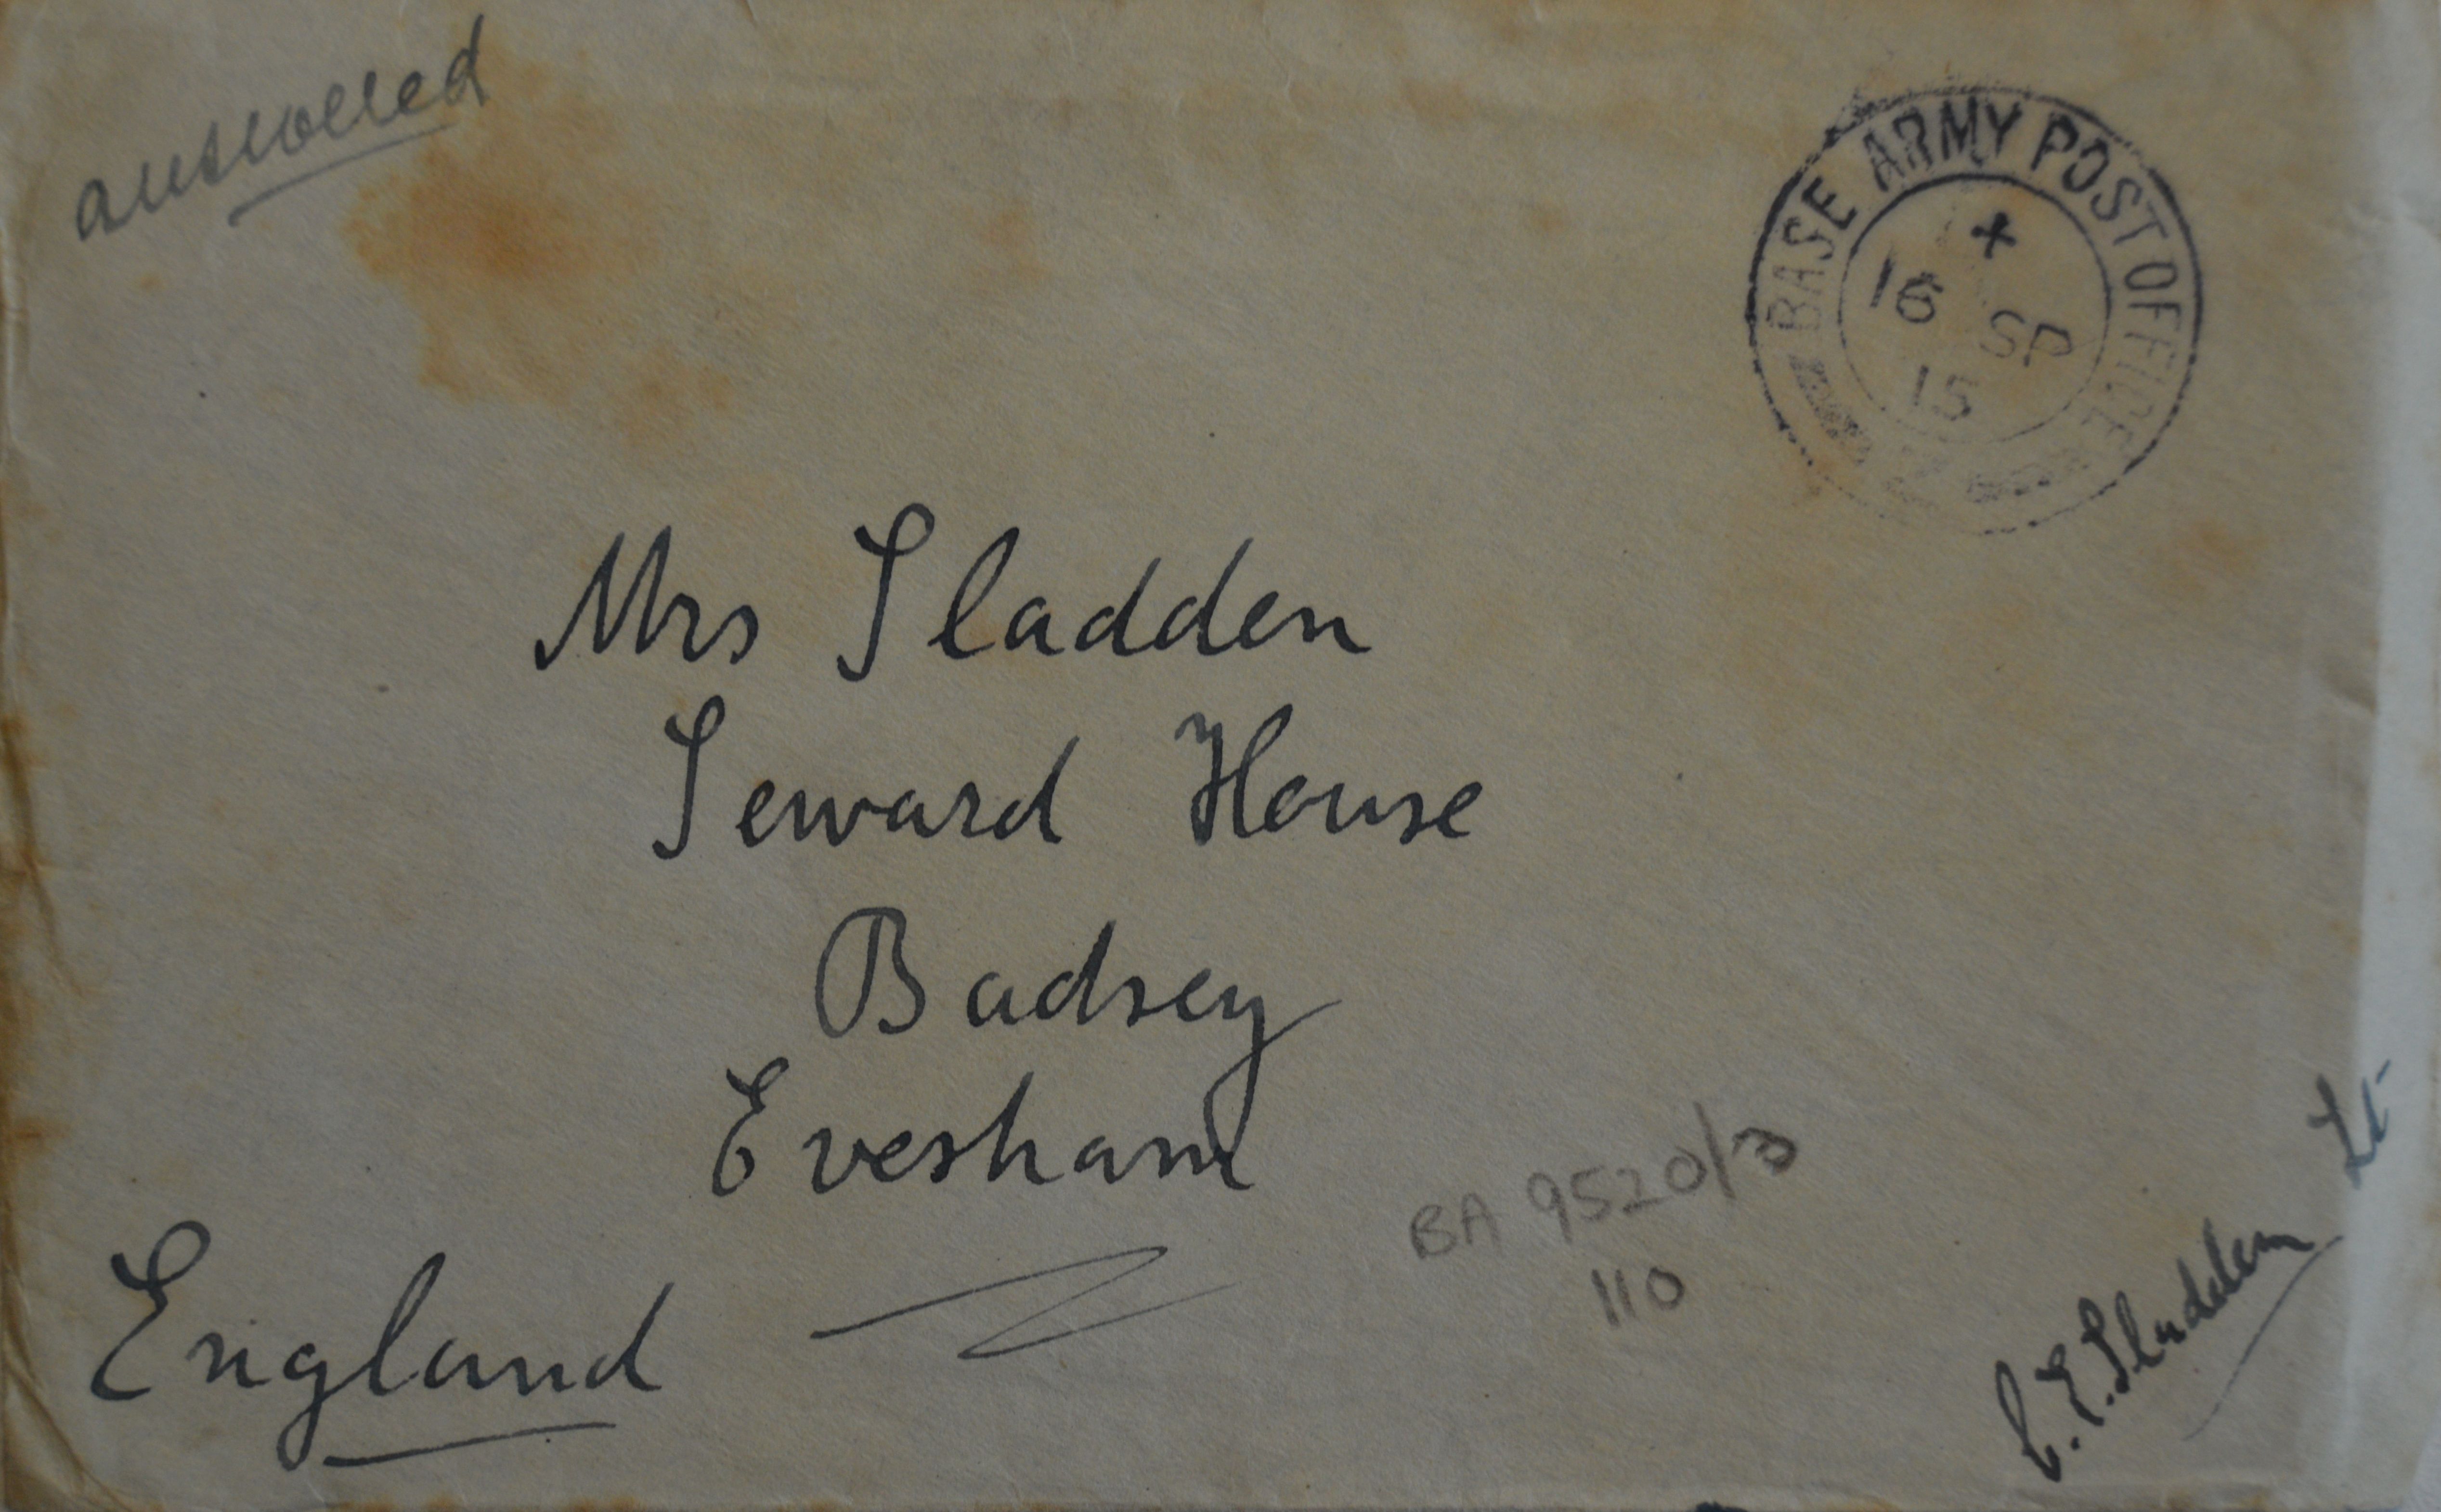 answered
BASE ARMY POST OFFICE Z
×
16 SP
15
Mrs Sladden
Seward House
Badsey
Evesham
England
BA 9520/3
110
C. E. Sladden Lt